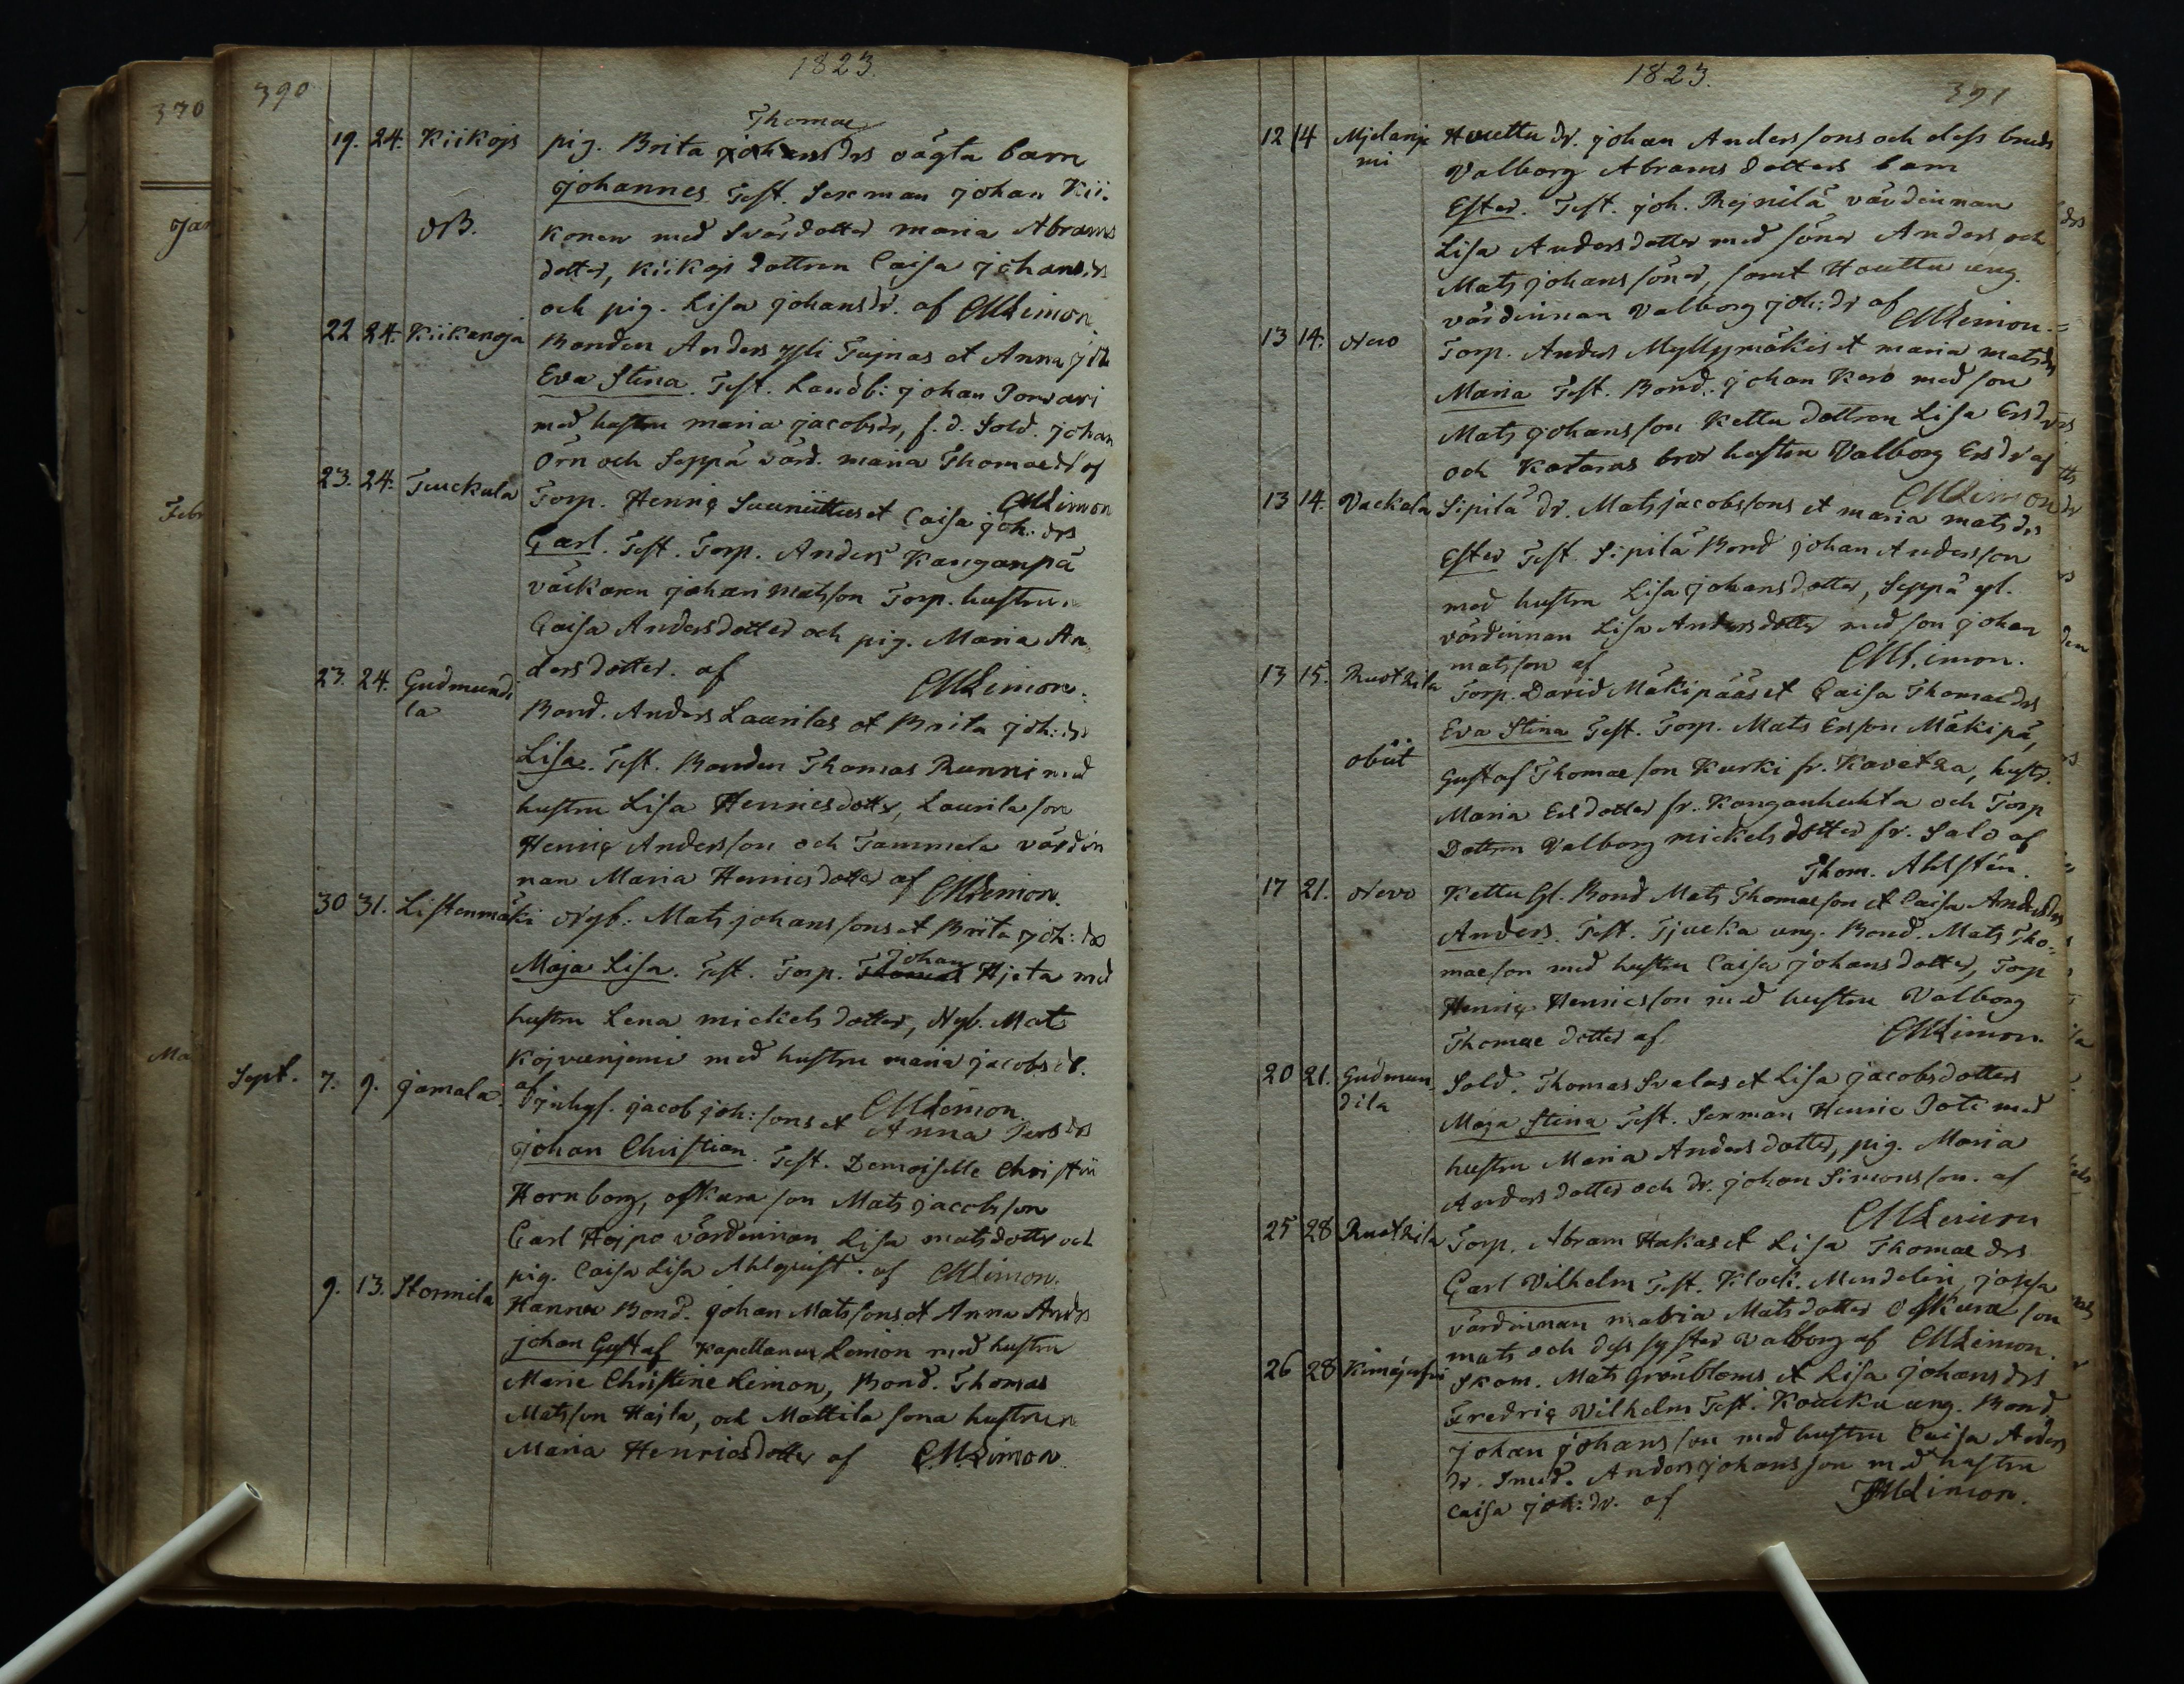 390
1823.
Thomae
19. 24. Kiikojs pig. Brita drs oägta barn
Johannes. Test. Sexman Johan Kii-
NB. konen med Svärdotter Maria Abrams
dotter, Kiikojs dottren Caisa Johansdr
och pig. Lisa Johansdr. af CMLimon.
22 24. Kiikanoja Bonden Anders Yli Tujnas et Anna Joh
Eva Stina. Test. Landb: Johan Porvari
med hustru Maria Jacobsdr, f.d. Sold. Johan
Örn och Seppä vård. Maria Thomaedr af
CMLimon
23. 24. Tuuckala Torp. Henric Suuniittus et Caisa Joh: drs
Carl. Test. Torp. Anders Kanganpä
väskaren Johan Matsson Torp. hustrun
Caisa Andersdotter och pig. Maria An
dersdotter. af CMLimon.
23. 24. Gudmundi
la
Bond. Anders Laurilas et Brita Joh: drs
Lisa. Test. Bonden Thomas Runni med
hustru Lisa Henricsdottr, Laurila son
Henric Andersson och Tammela värdin
nan Maria Henricsdotter af CMLimon.
30 31. Listenmäki Nyb. Mats Johanssons et Brita Joh: drs
Johan
Maja Lisa. Test. Torp. Thomas Hjeta med
hustru Lena Mickelsdotter, Nyb. Mats
Kojvunjemi med hustru Maria Jacobsdr.
af CMLimon.
Sept. 7. 9. Jamala. Jnhys. Jacob Joh: sons et Anna drs
Johan Christian. Test. Demoiselle Christin
Hornborg, son Mats Jacobsson
Carl Hojpo värdinnan Lisa Matsdottr och
pig. Caisa Lisa Ahlquist. af CMLimon.
9. 13. Stormila Hannu Bond. Johan Matssons et Anna Andrs
Johan Gustaf Kapellanen Limon med hustru
Marie Christine Limon, Bond. Thomas
Matsson Hajla, och Mattila sona hustrun
Maria Henricsdotter af CMLimon.
1823.
391
12 14 Mjelanje
mi
Houttu dr. Johan Anderssons och dess bruds
Valborg Abramsdotters barn
Ester. Test. Joh. Rejnilä värdinnan
Lisa Andersdotter med söner Anders och
Mats Johanssöner, samt Houttu ung.
värdinnan Valborg Joh: dr af CMLimon.
13 14. Nevo Torp. Anders Myllymäkis et Maria Matsdr
Maria Test. Bond. Johan Kero med son
Mats Johansson Kettu dottren Lisa Ersdr
och Kataras bror hustru Valborg Ersdr af
CMLimon
13 14. Vackala Sipilä dr. Mats Jacobssons et Maria Matsdrs
Ester Test. Sipilä Bond Johan Andersson
med hustru Lisa Johansdotter, Seppä gl.
värdinnan Lisa Andersdotter med son Johan
Matsson af CMLimon.
13 15. Rustkila Torp. David Mäkipääs et Caisa Thomaedrs
Eva Stina Test. Torp. Mats Ersson Mäkipä,
obiit Gustaf Thomaeson Kurki fr. Kavetka, hustr.
Maria Ersdotter fr. Kanganhuhta och Torp
Dottren Valborg Mickelsdotter fr. Salo af
Thom. Ahlstén.
17 21. Nevo Kettu Gl. Bond Mats Thomaeson et Caisa Andersdrs
Anders. Test. Tjucka ung. Bond. Mats Tho-
maeson med hustru Caisa Johansdotter, Torp
Henric Henricsson med hustru Valborg
Thomaedotter af CMLimon.
20 21. Gudmun-
dila
Sold. Thomas Svalas et Lisa Jacobsdotters
Maja Stina Test. Sexman Henric Doti med
hustru Maria Andersdotter, pig. Maria
Andersdotter och dr. Johan Simonsson. af
CMLimon
25 28 Rustkila Torp. Abram Hakas et Lisa Thomae drs
Carl Vilhelm Test. Klock. Mendelin,
värdinnan Maria Matsdotter son
Mats och dess syster Valborg af CMLimon.
26 28 Skom. Mats Grönbloms et Lisa Johansdrs
Fredric Vilhelm Test. Koucku ung. Bond.
Johan Johansson med hustru Caisa Anders
dr. Smed. Anders Johansson med hustru
Caisa Joh: dr. af CMLimon.
370
Jan
Febr
Ma